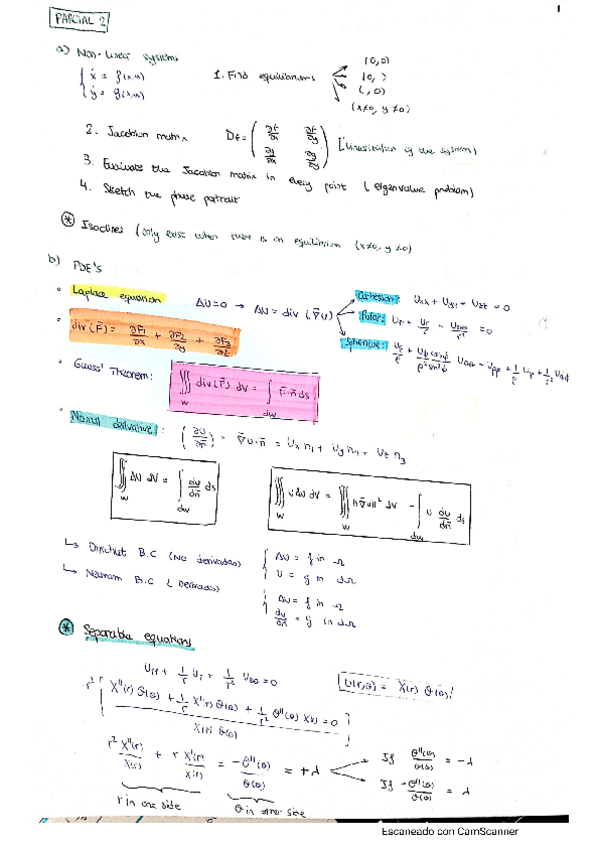 1
PARCIAL 2
a) Non-linear systems
{ ẋ = f(x,y)
{ ẏ = g(x,y)
1. Find equilibriums
(0,0)
(0, )
( ,0)
(x≠0, y≠0)
2. Jacobian matrix Df = ( ∂f/∂x ∂f/∂y ; ∂g/∂x ∂g/∂y ) [linearization of the system)
3. Evaluate the Jacobian matrix in every point ( eigenvalue problem)
4. Sketch the phase portrait
* Isoclines (only exist when there is an equilibrium (x≠0, y≠0)
b) PDE's
· Laplace equation ΔU=0 → ΔU = div (∇̄U)
Cartesian: Uxx + Uyy + Uzz = 0
Polar: Urr + Ur/r + Uθθ/r² = 0
Spherical:
· div(F̄) = ∂F1/∂x + ∂F2/∂y + ∂F3/∂z
· Gauss' Theorem: ∭ div(F̄) dV = ∫ F̄·n̄ ds
W ∂W
· Normal derivative: (∂U/∂n̄) = ∇̄U·n̄ = Ux n1 + Uy n2 + Uz n3
∭ ΔU dV = ∫ ∂U/∂n̄ ds
W ∂W
∭ UΔU dV = ∭ ||∇̄U||² dV - ∫ U ∂U/∂n̄ ds
W W ∂W
↳ Dirichlet B.C (No derivades) { ΔU = f in Ω
{ U = g in ∂Ω
↳ Neumann B.C ( Derivades) { ΔU = f in Ω
{ ∂U/∂n̄ = g in ∂Ω
* Separable equations
Urr + 1/r Ur + 1/r² Uθθ = 0
U(r,θ) = X(r) Θ(θ)
r² [ X''(r) Θ(θ) + 1/r X'(r) Θ(θ) + 1/r² Θ''(θ) X(r) = 0 ]
X(r) Θ(θ)
r² X''(r)/X(r) + r X'(r)/X(r) = -Θ''(θ)/Θ(θ) = +λ
If Θ''(θ)/Θ(θ) = -λ
If -Θ''(θ)/Θ(θ) = λ
r in one side
θ in other side
Escaneado con CamScanner